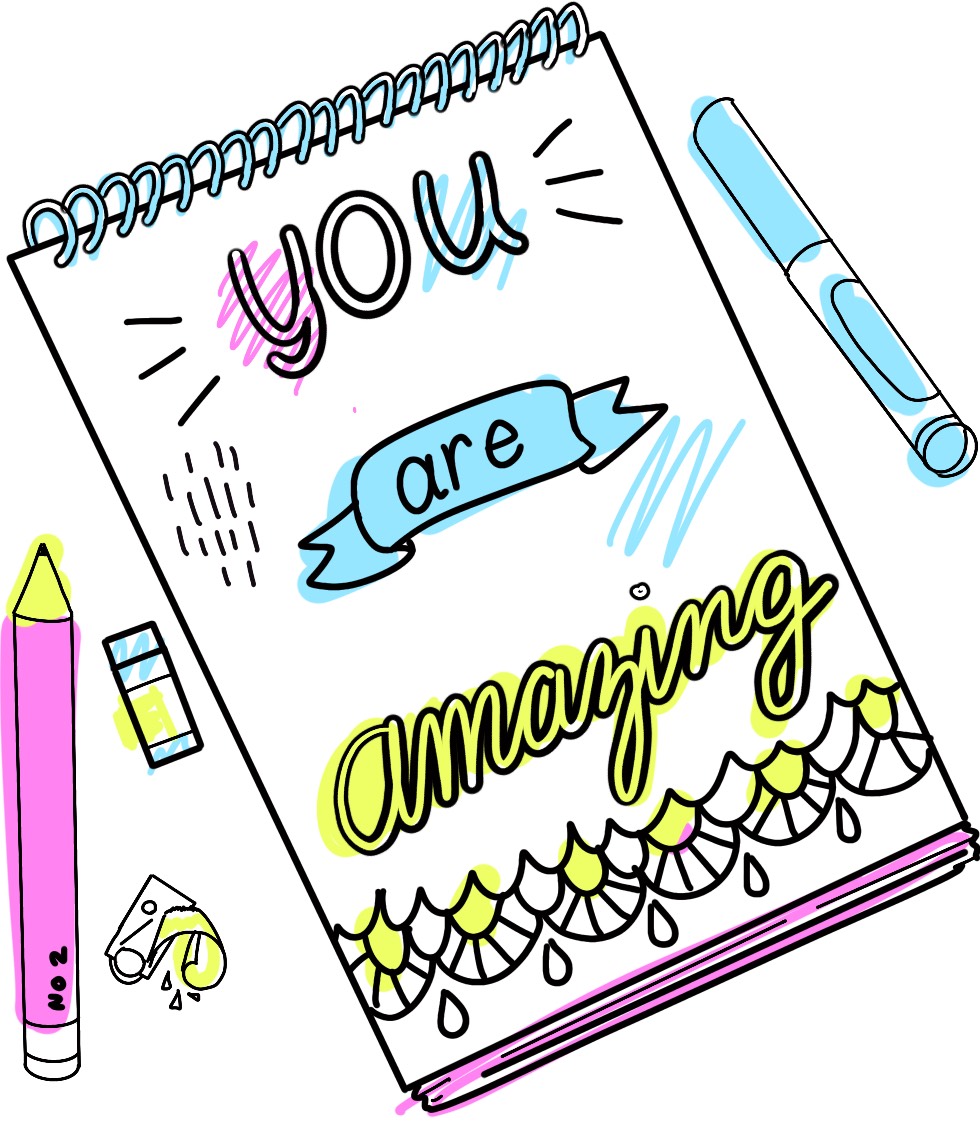 you
are
amazing
NO 2